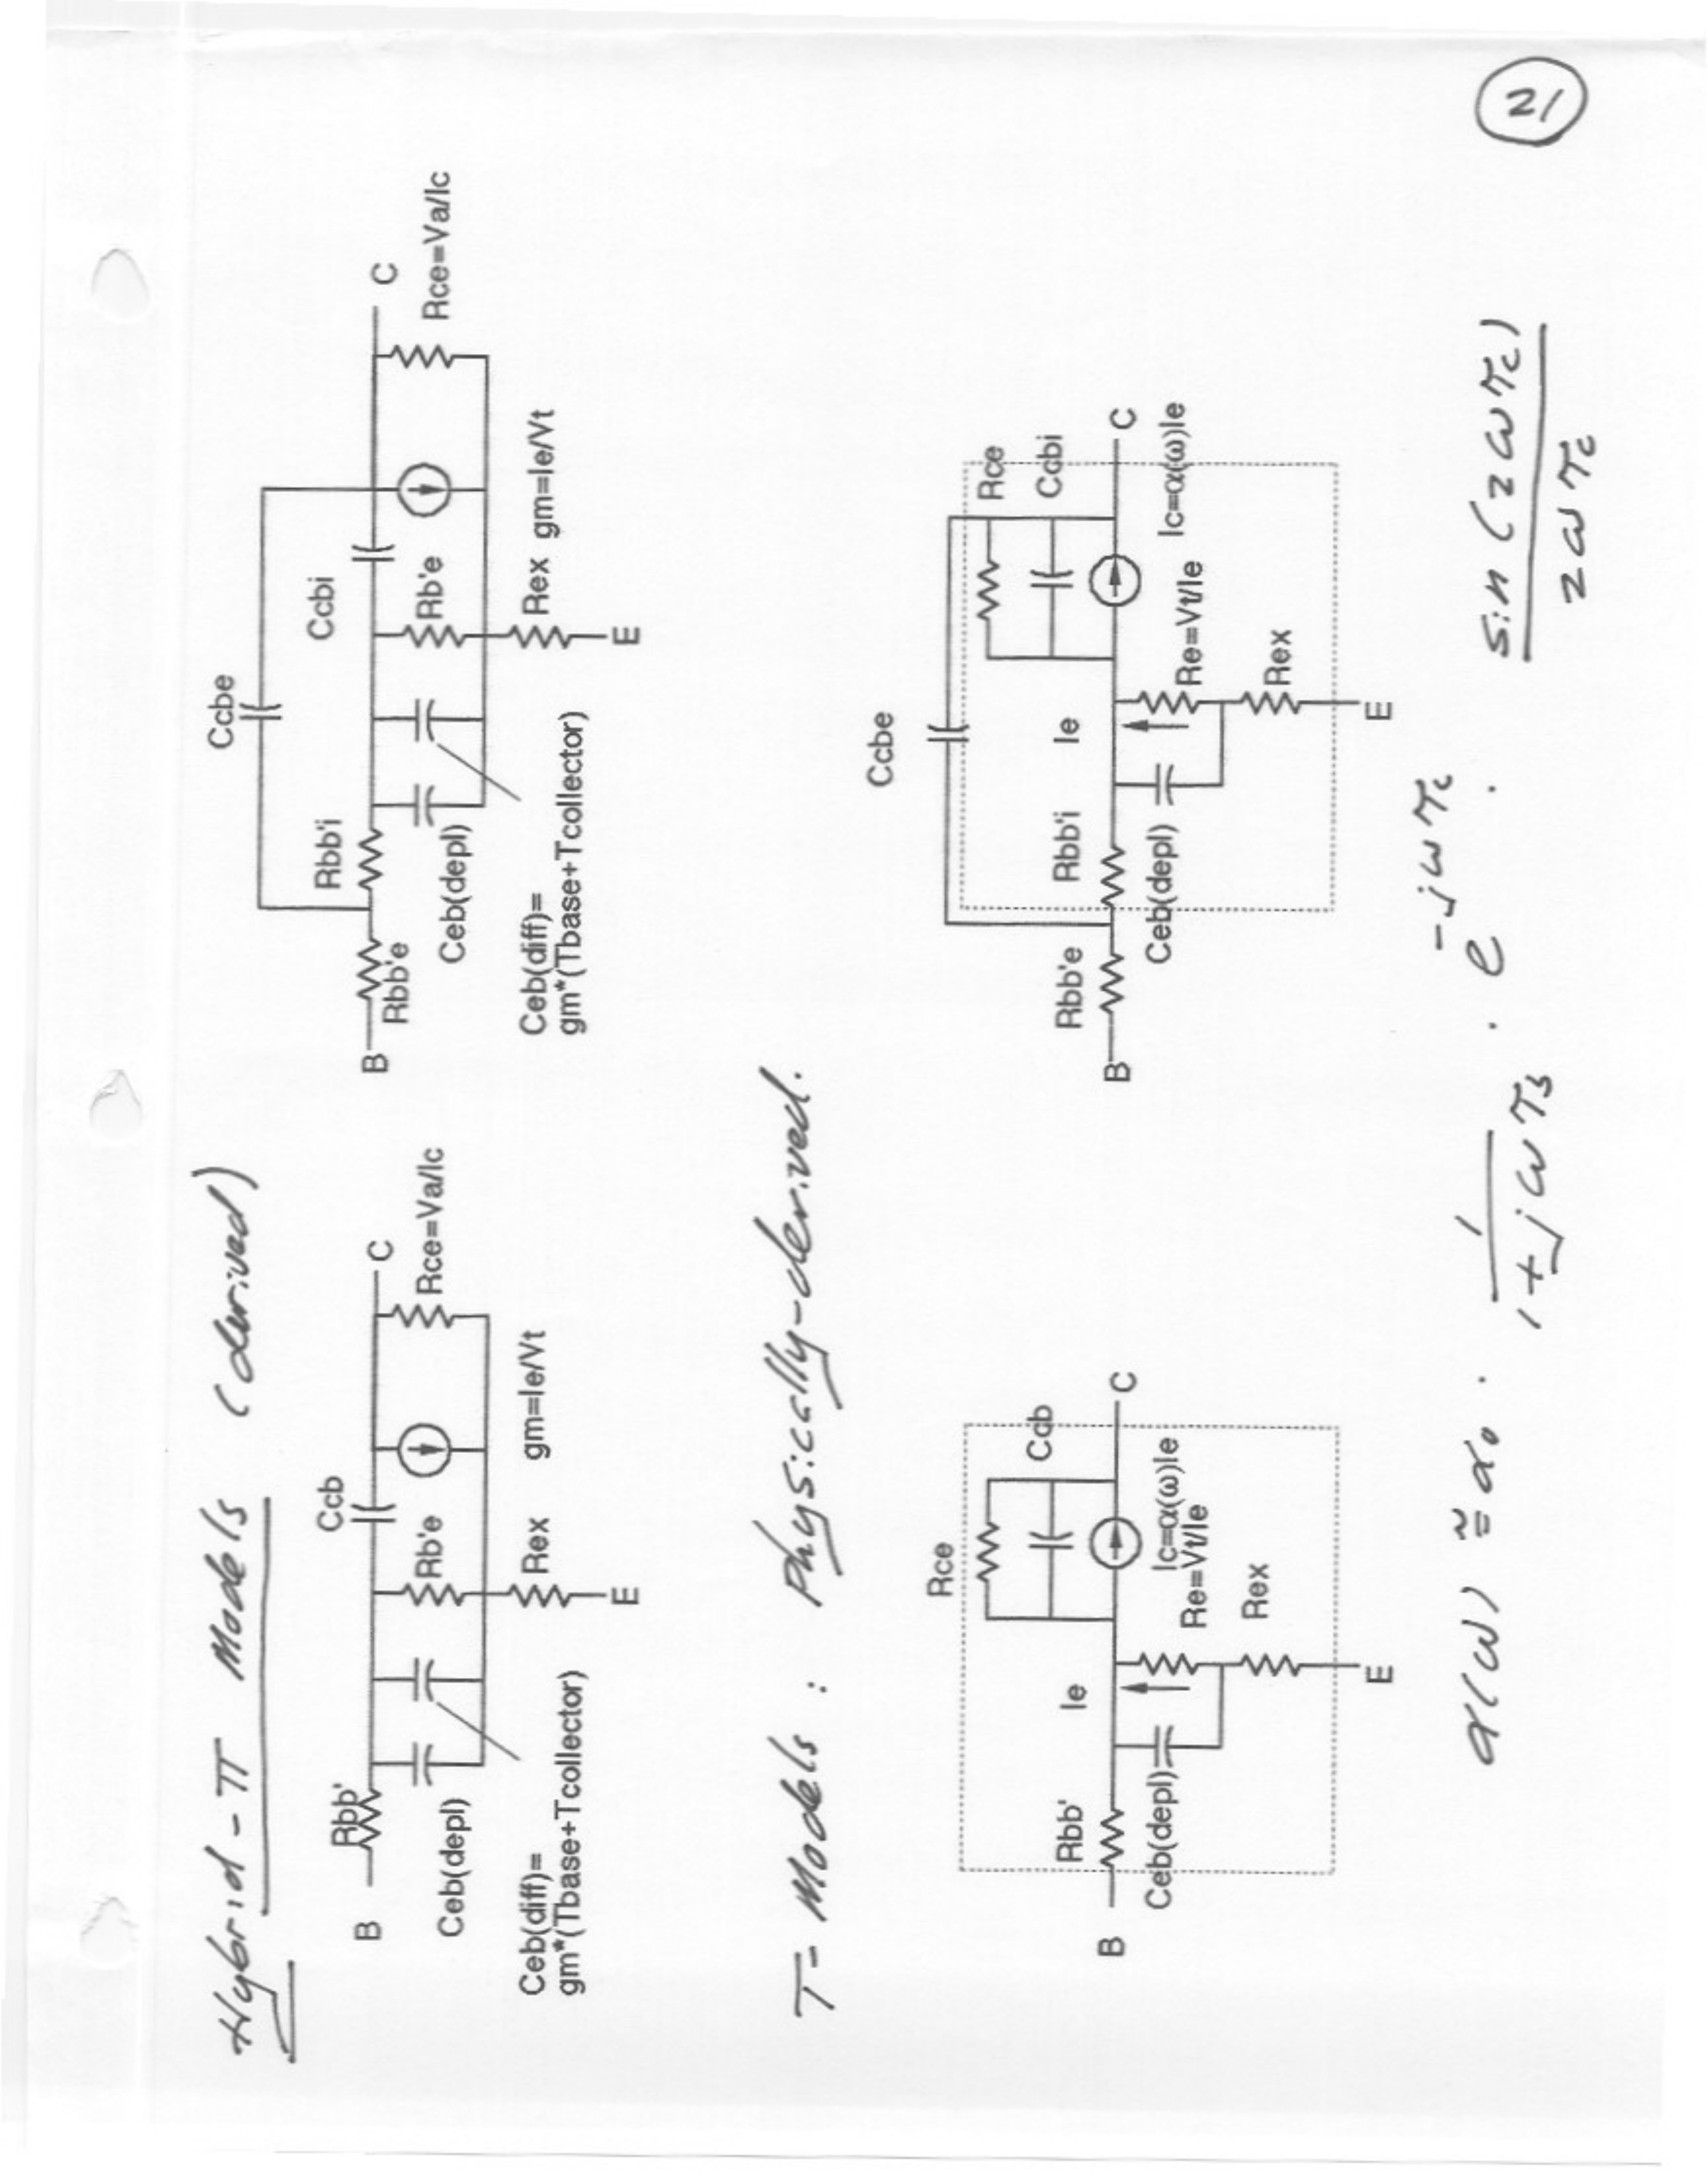 21
Hybrid-π Models (derived)
B
Rbb'
Ccb
C
Ceb(depl)
Rb'e
Rce=Va/Ic
Ceb(diff)=
gm*(Tbase+Tcollector)
Rex
gm=Ie/Vt
E
Ccbe
B
Rbb'e
Rbb'i
Ccbi
C
Ceb(depl)
Rb'e
Rce=Va/Ic
Ceb(diff)=
gm*(Tbase+Tcollector)
Rex
gm=Ie/Vt
E
T-Models : Physically-derived.
Rce
Ccb
B
Rbb'
Ie
C
Ceb(depl)
Ic=α(ω)Ie
Re=Vt/Ie
Rex
E
Ccbe
Rce
Ccbi
B
Rbb'e
Rbb'i
Ie
C
Ceb(depl)
Re=Vt/Ie
Ic=α(ω)Ie
Rex
E
α(ω) ≅ α₀ · 1 / (1+jωτb) · e^(-jωτc) · sin(2ωτc) / 2ωτc